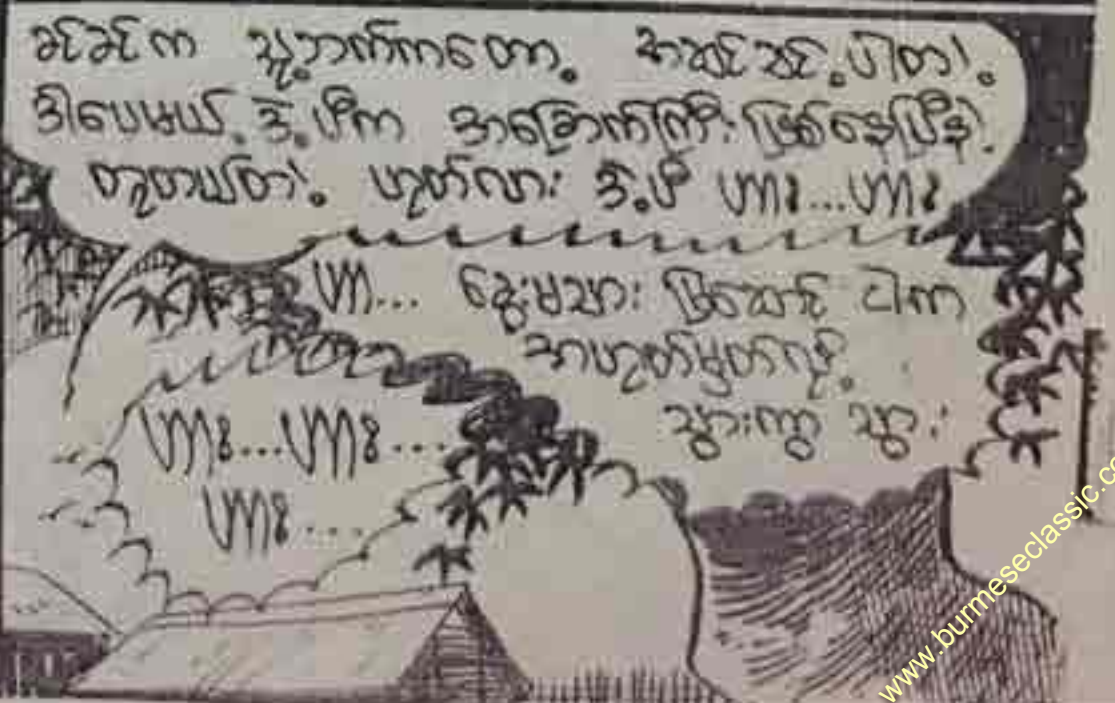 ခင်ခင်က သူ့ဘက်ကတော့ အဆင်သင့်ပါတဲ့
ဒါပေမယ့် ဒဲ့ပီက အခြောက်ကြီးဖြစ်နေပြီနဲ့
တူတယ်တဲ့ ဟုတ်လား ဒဲ့ပီ ဟား...ဟား
ဟာ... ခွေးမသား ဖြိုးအောင် ငါက
အဟုတ်မှတ်လို့
သွားကွာ သွား
ဟား...ဟား...
ဟား...
www.burmeseclassic.co